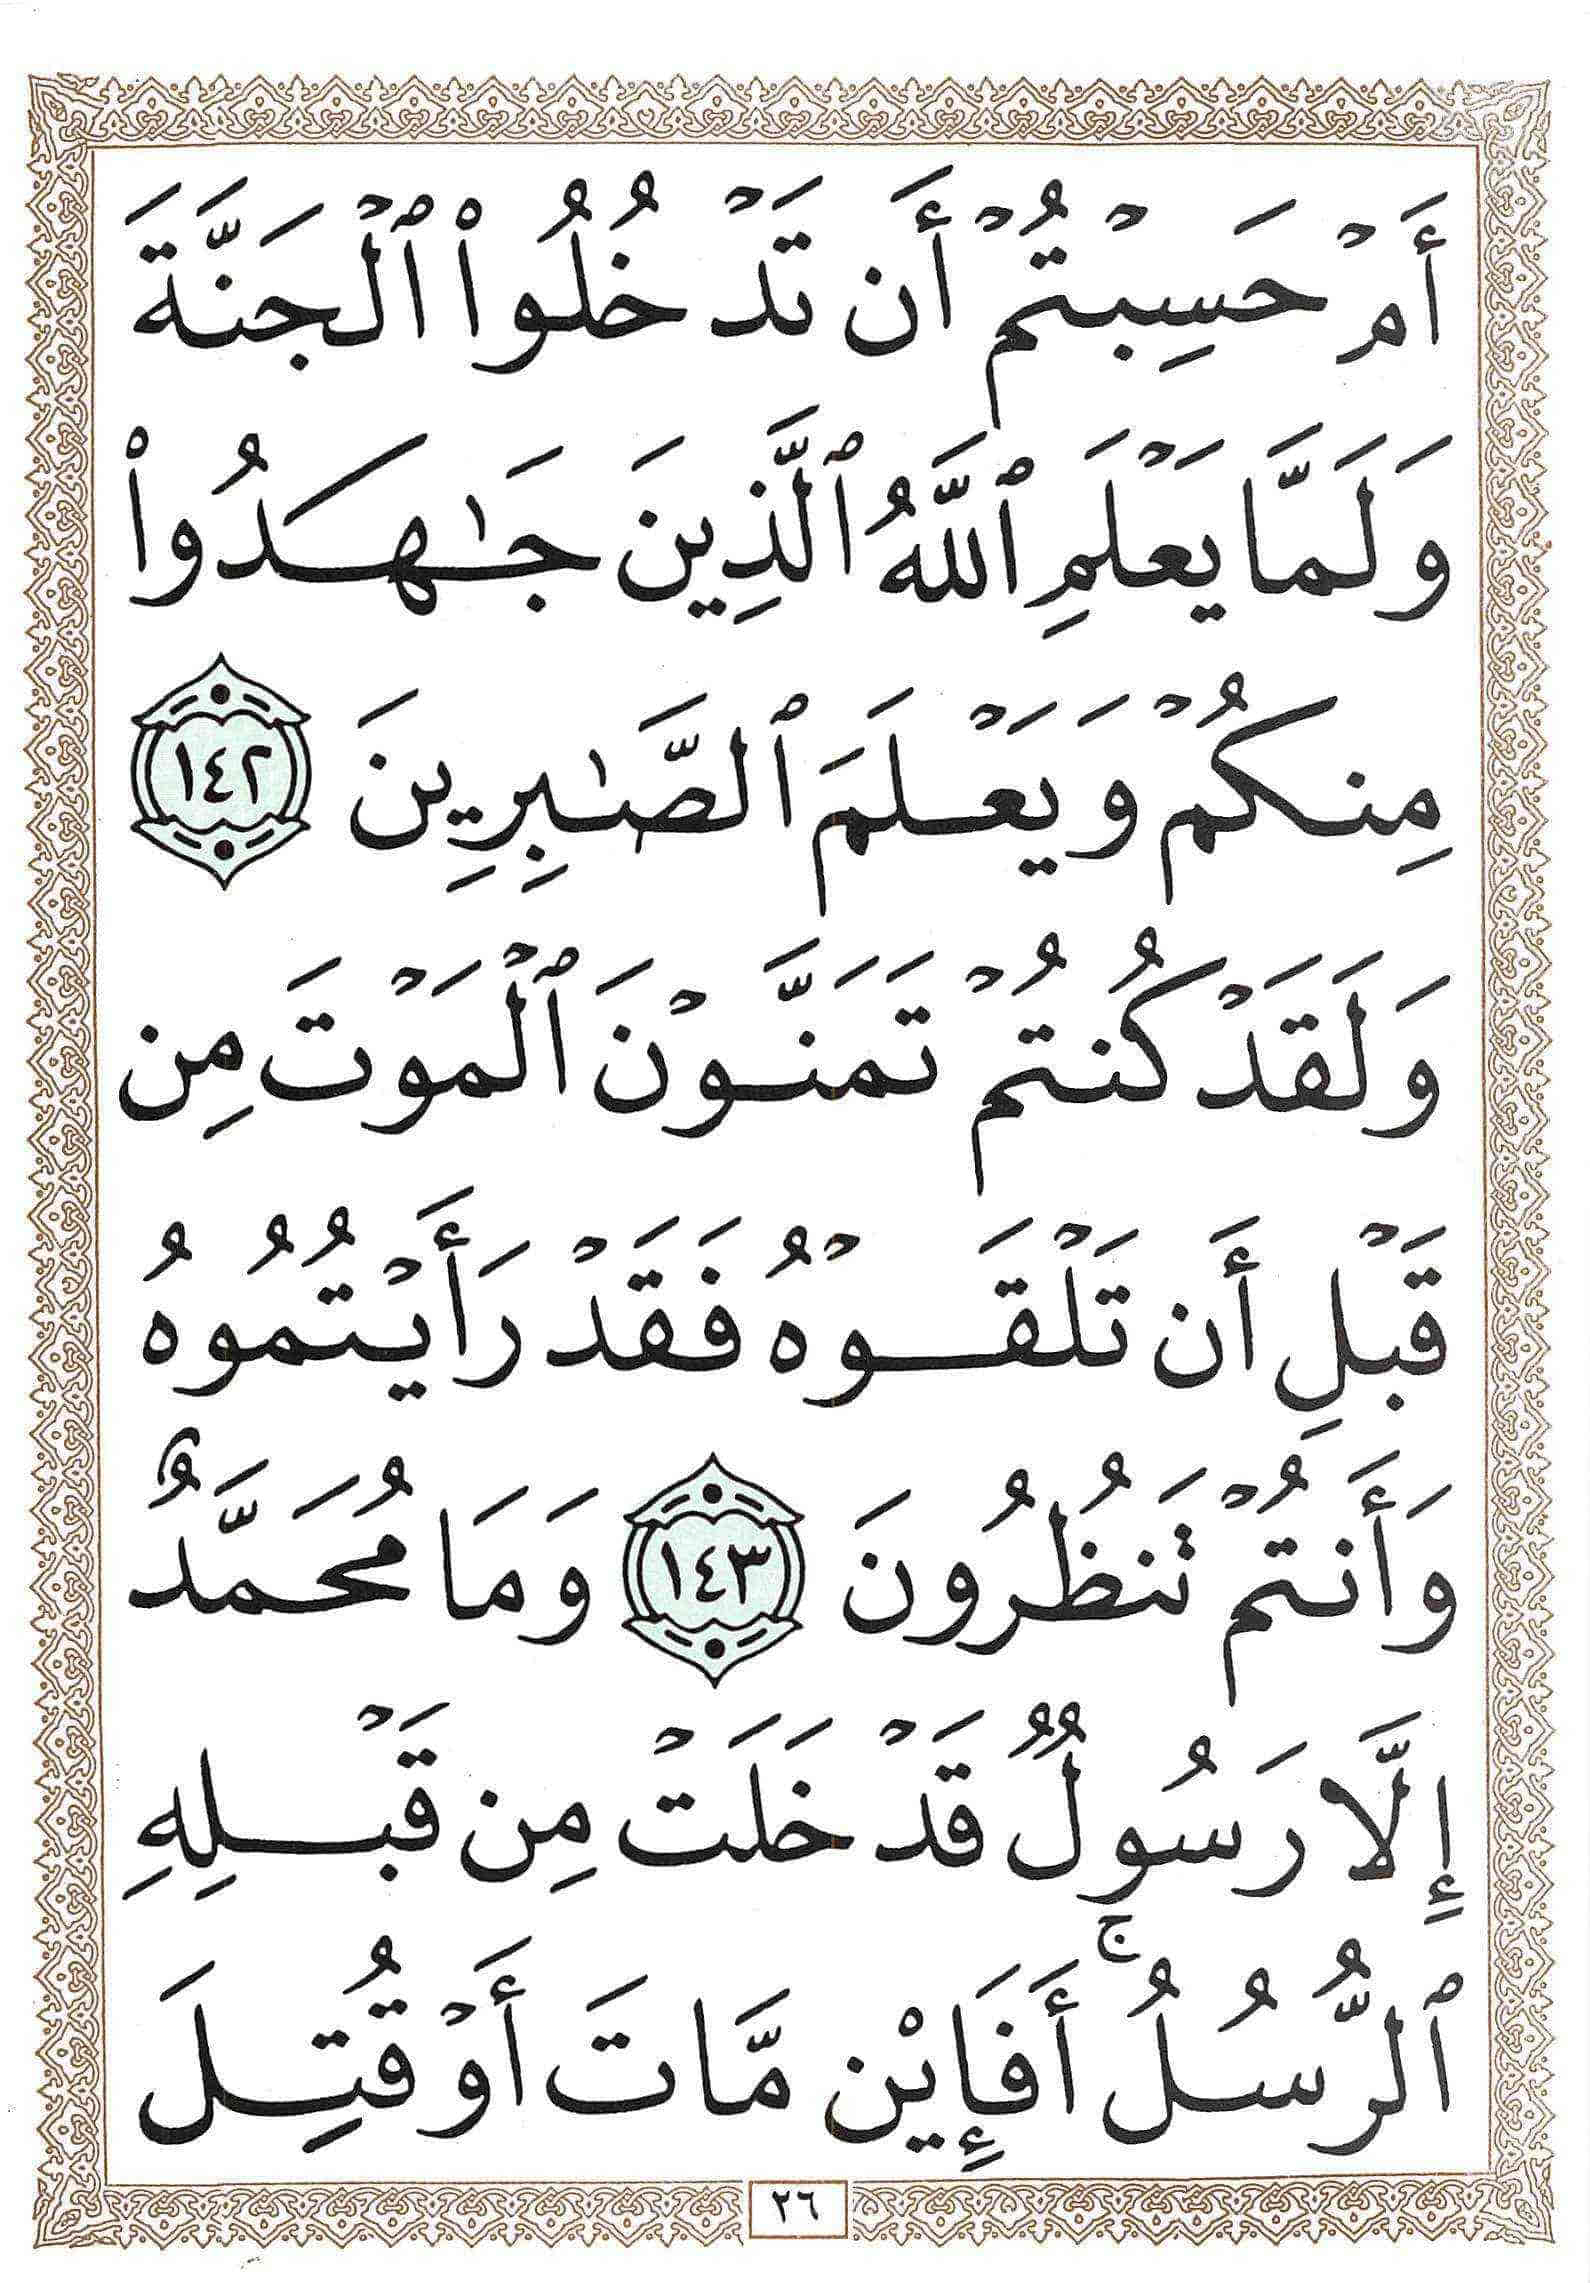 أَمْ حَسِبْتُمْ أَن تَدْخُلُوا۟ ٱلْجَنَّةَ
وَلَمَّا يَعْلَمِ ٱللَّهُ ٱلَّذِينَ جَٰهَدُوا۟
مِنكُمْ وَيَعْلَمَ ٱلصَّٰبِرِينَ ١٤٢
وَلَقَدْ كُنتُمْ تَمَنَّوْنَ ٱلْمَوْتَ مِن
قَبْلِ أَن تَلْقَوْهُ فَقَدْ رَأَيْتُمُوهُ
وَأَنتُمْ تَنظُرُونَ ١٤٣ وَمَا مُحَمَّدٌ
إِلَّا رَسُولٌ قَدْ خَلَتْ مِن قَبْلِهِ
ٱلرُّسُلُ ۚ أَفَإِي۟ن مَّاتَ أَوْ قُتِلَ
٢٦